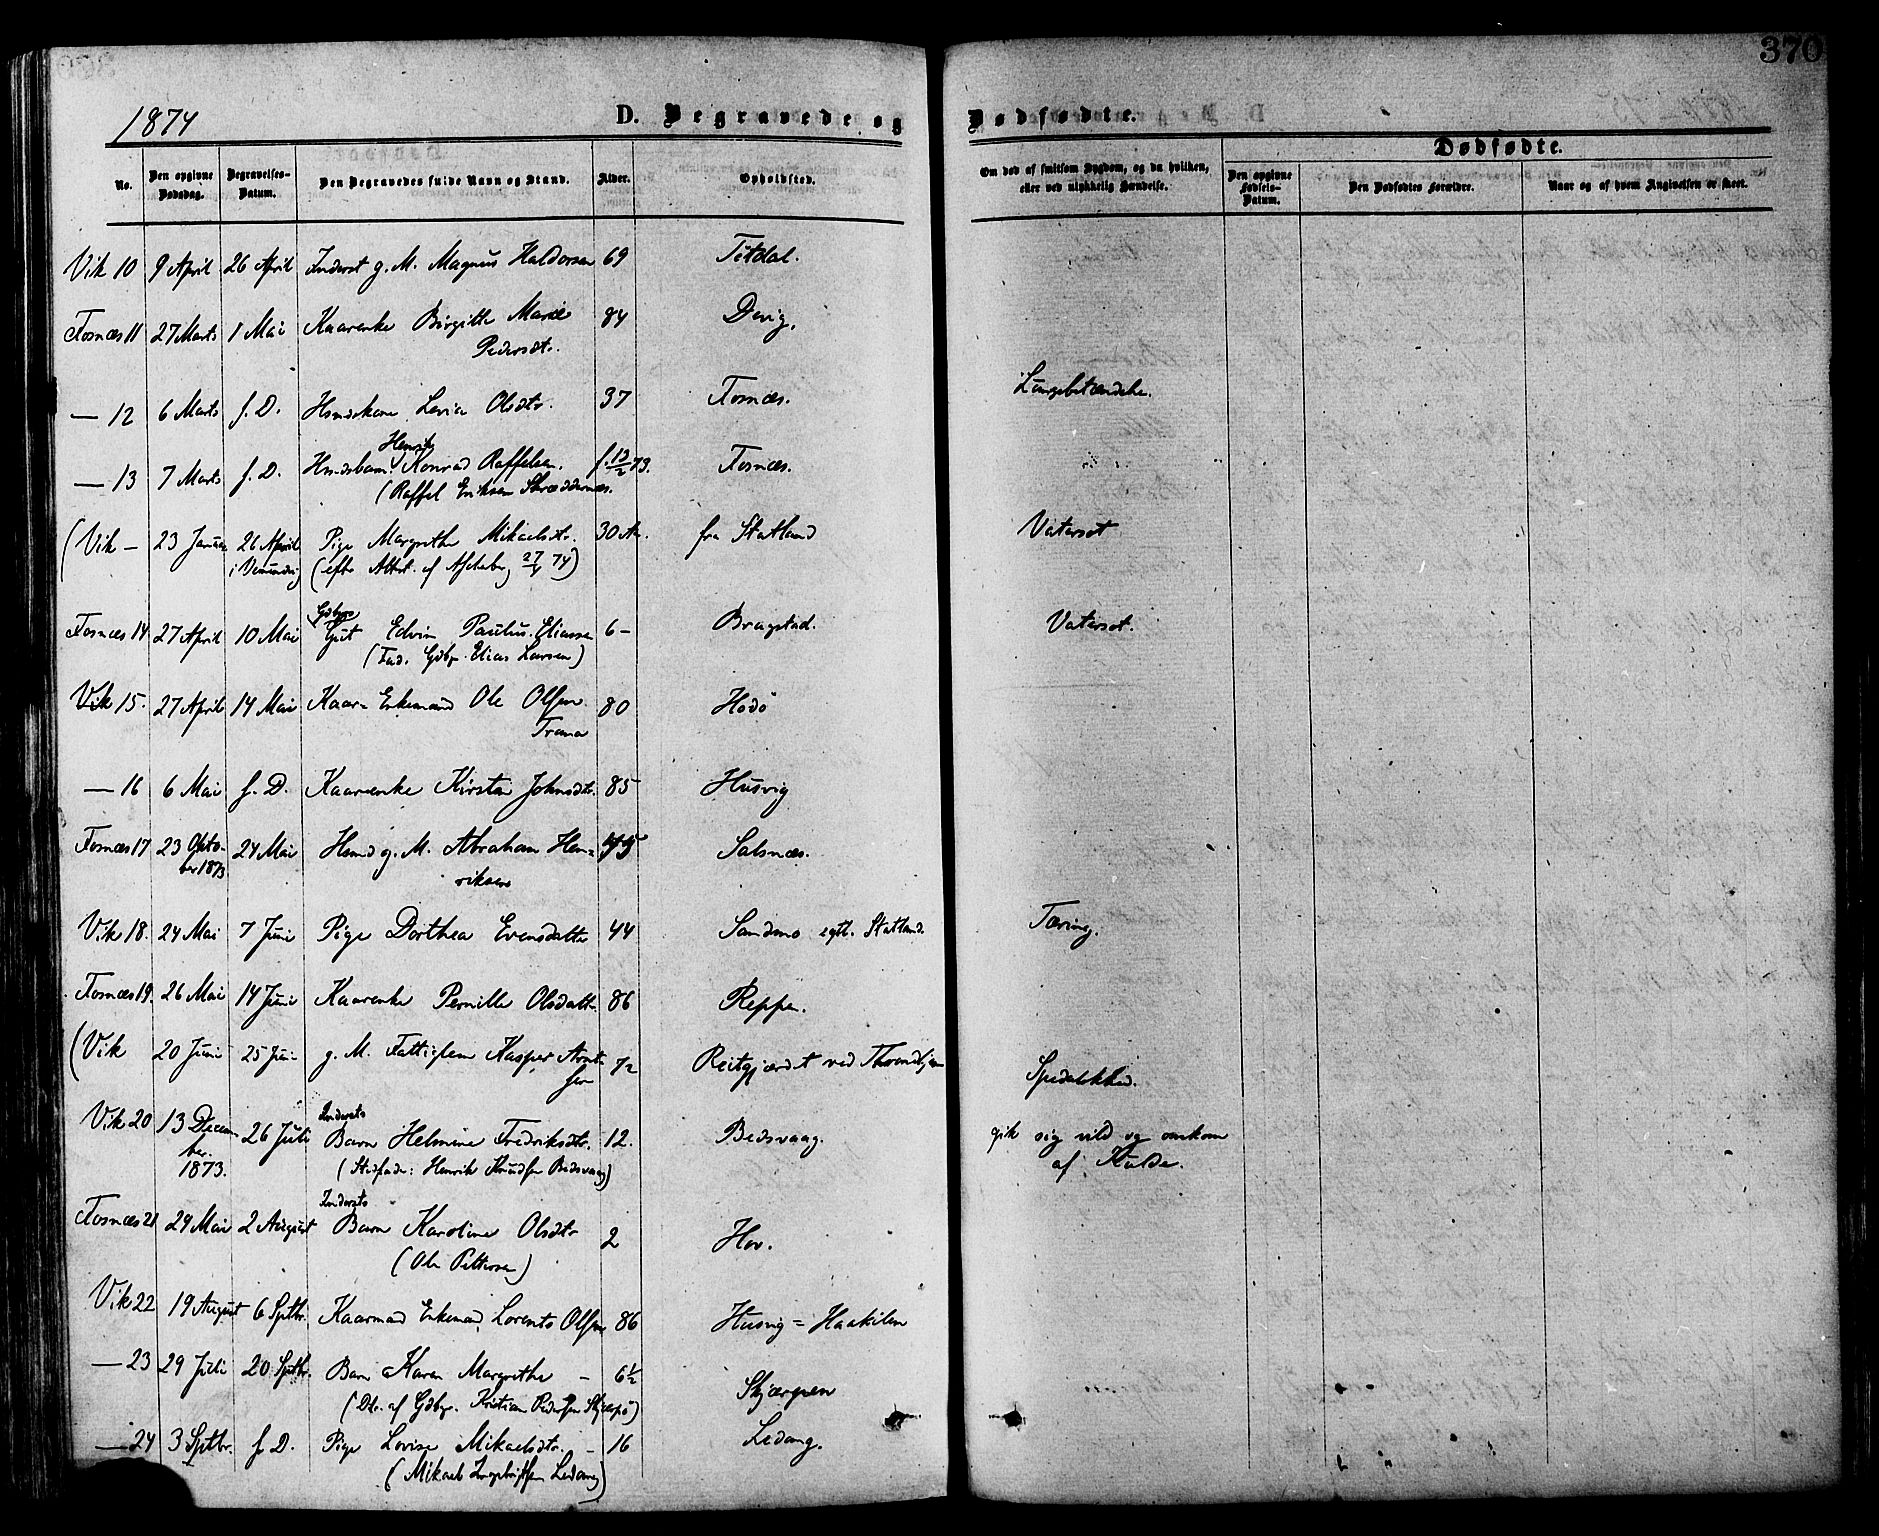 370
1874
D. Begravede og Dødfødte.
No.
Den opgivne Dødsdag.
Begravelses-Datum.
Den Begravedes fulde Navn og Stand.
Alder.
Opholdsted.
Om død af smitsom Sygdom, og da hvilken, eller ved ulykkelig Hændelse.
Dødfødte.
Den opgivne Fødsels-Datum.
Den Dødfødtes Forældre.
Naar og af hvem Angivelsen er skeet.
Vik 10 9 April 26 April Inderst g. M. Magnus Haldorsen 69 Titdal.
Fosnæs 11 27 Marts 1 Mai Kaarenke Birgitte Marie 84 Devig.
Pedersdt.
— 12 6 Marts f. D. Hmdskone Levia Olsdtr. 37 Fosnæs. Lungebetændelse.
Henrik
— 13 7 Marts f. D. Hmdsbarn Konrad Raffelsen. f. 13/2 73. Fosnæs.
(Raffel Eriksen Skræddernæs.
(Vik — 23 Januar 26 April Pige Margrethe Mikaelsdtr. 30 Ar. fra Statland Vatersot
i Vemundvig (efter Attest. af 27/4 74)
Gdbrs
Fosnæs 14 27 April 10 Mai Gut Edvin Paulus Eliassen 6 — Bragstad. Vatersot.
(Fad. Gdbr. Elias Larsen)
Vik 15. 27 April 14 Mai Kaar- Enkemand Ole Olsen 80 Hodø
Trana
— 16 6 Mai f. D. Kaarenke Kirsten Johnsdtr. 85 Husvig
Fosnæs 17 23 Okto- 24 Mai Hmd g. M. Abraham Hen- Salsnæs.
ber 1873 riksen
Vik 18. 24 Mai 7 Juni Pige Dorthea Evensdatter 44 Sandmo egtl. Statland. Tæring.
Fosnæs 19. 26 Mai 14 Juni Kaarenke Pernille Olsdattr 86 Reppen.
(Vik 20 Juni 25 Juni g. M. Fattiglem Kasper Arnt- 72 Reitgjærdet ved Throndhjem Spedalskhed.
sen
Indersts
Vik 20 13 Decem- 26 Juli Barn Helmine Fredriksdtr. 12. Bedsvaag. gik sig vild og omkom
ber. 1873. (Stedfader: Henrik Knudsen Bedsvaag) af Kulde.
Indersts
Fosnæs 21 24 Mai 2 August Barn Karoline Olsdtr 2 Hov.
(Ole Pettersen)
Vik 22 19 August 6 Septbr. Kaarmand Enkemand Lorents Olsen 86 Husvig = Haakilen
— 23 29 Juli 20 Septbr. Barn Karen Margrethe — 6 1/2 Skjærpen
(Dtr. af Gdbr. Kristian Pedersen Skjærpø)
— 24 3 Septbr. f. D. Pige Lovise Mikaelsdtr. — 16 Ledang.
(Mikael Ingebrigtsen Ledang)